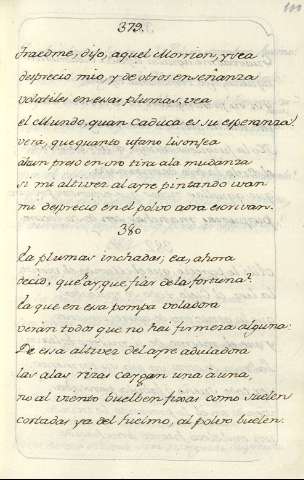 379.
Traedme, dijo, aquel Morrion, y sea
desprecio mio, y de otros enseñanza
volatiles en esas plumas, vea
el Mundo, quan caduca es su esperanza!
vera, que quanto ufano lisonjea
atun preso en oro tira ala mudanza
si mi altivez al ayre pintando ivan
mi desprecio en el polvo aora escrivan.
380
Ea plumas inchadas; ea, ahora
decid, que ay que fiar de la fortuna?
la que en esa pompa voladora
verán todos que no hai firmeza alguna:
De esa altivez del ayre aduladora
las alas rizas caygan una à una,
no al viento buelben fixas como suelen
cortadas ya del hielmo, al polvo buelen.